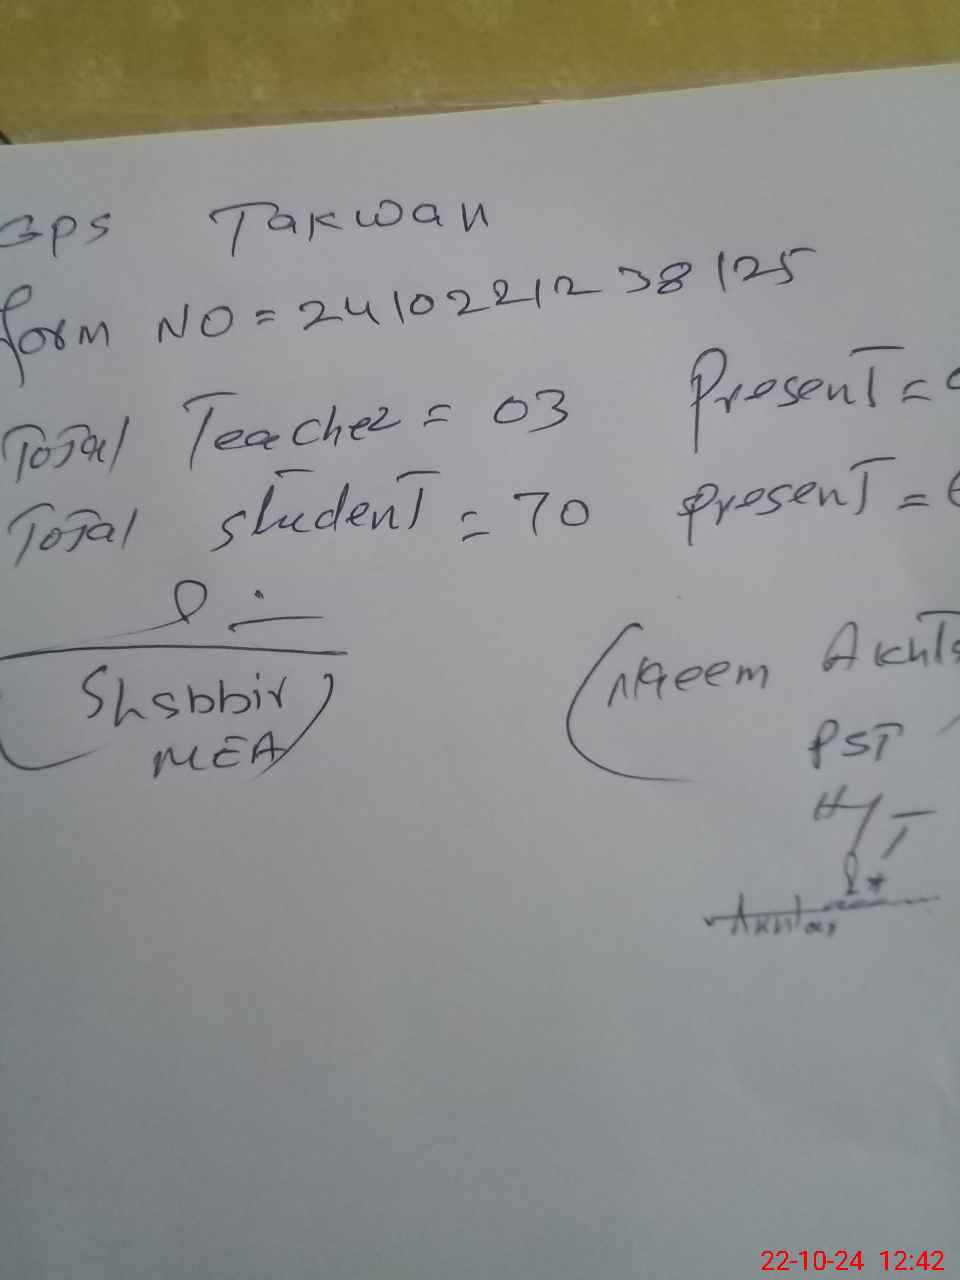 GPS Takwan
form NO = 2410221238125
Total Teacher = 03 Present =
Total student = 70 present =
Shabbir
MEA
Naeem
PST
Akhtar
22-10-24 12:42